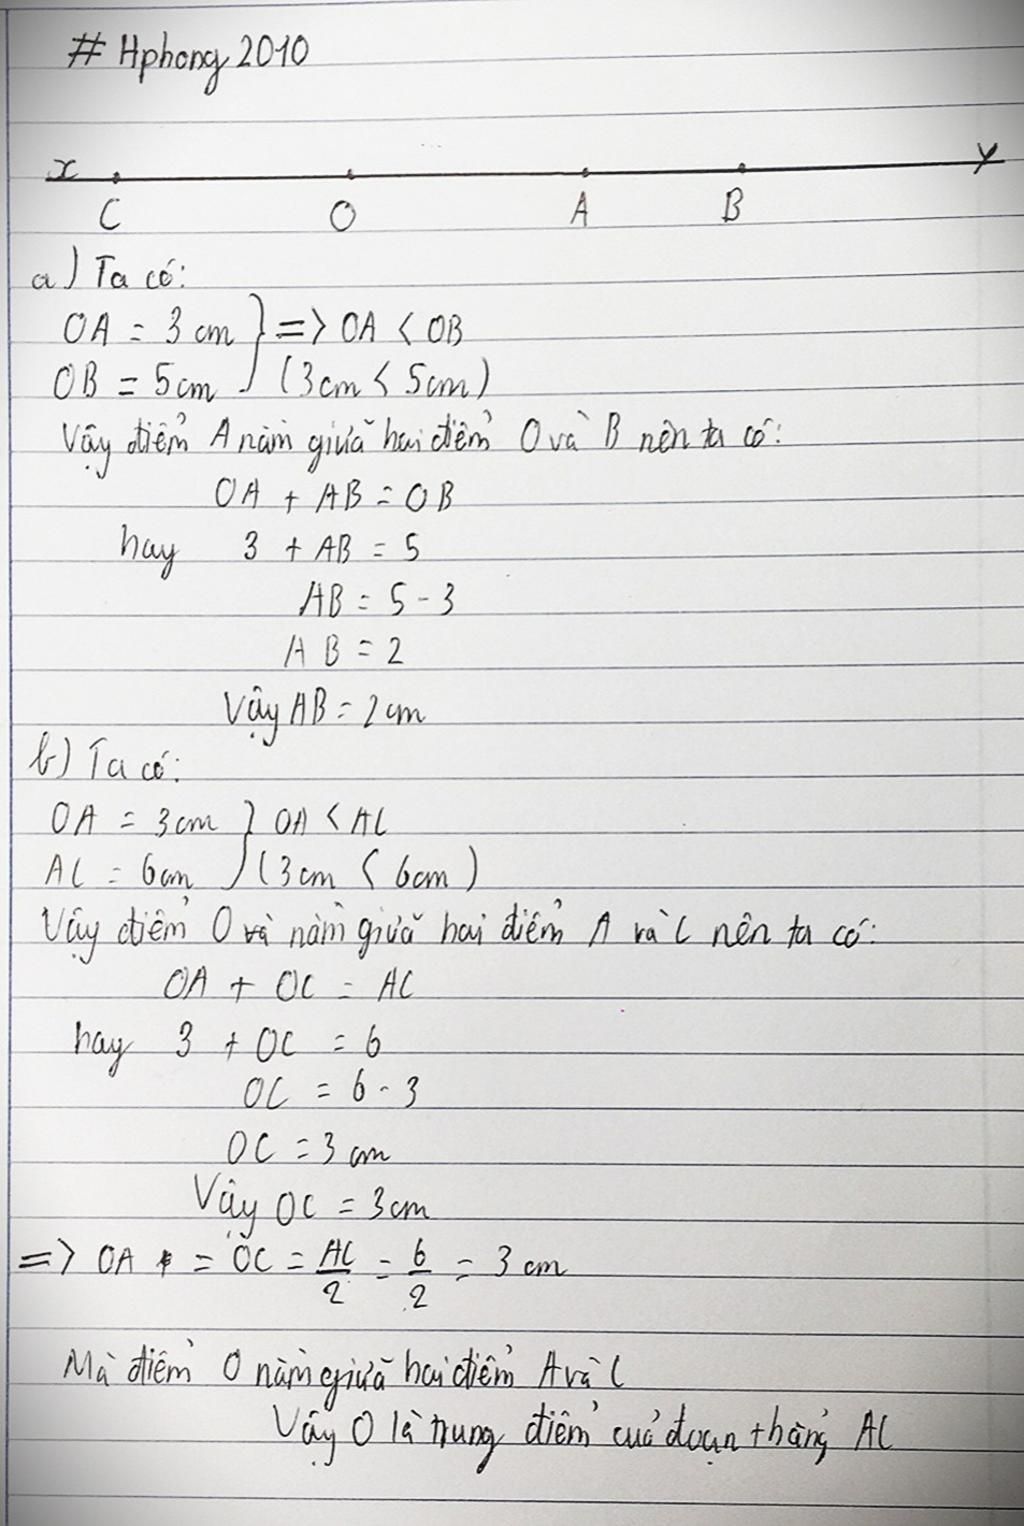 # Hphong 2010
x y
C O A B
a) Ta có:
OA = 3 cm } => OA < OB
OB = 5cm (3cm < 5cm)
Vậy điểm A nằm giữa hai điểm O và B nên ta có:
OA + AB = OB
hay 3 + AB = 5
AB = 5 - 3
AB = 2
Vậy AB = 2cm
b) Ta có:
OA = 3cm } OA < AC
AC = 6cm (3cm < 6cm)
Vậy điểm O và nằm giữa hai điểm A và C nên ta có:
OA + OC = AC
hay 3 + OC = 6
OC = 6 - 3
OC = 3 cm
Vậy OC = 3cm
=> OA = OC = AC/2 = 6/2 = 3 cm
Mà điểm O nằm giữa hai điểm A và C
Vậy O là trung điểm của đoạn thẳng AC